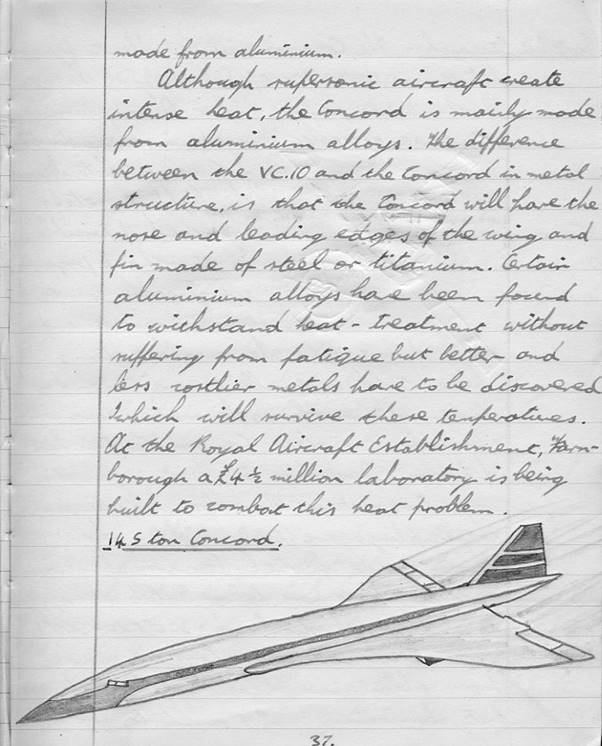 made from aluminium.
Although supersonic aircraft create
intense heat, the Concord is mainly made
from aluminium alloys. The difference
between the VC.10 and the Concord in metal
structure, is that the Concord will have the
nose and leading edges of the wing and
fin made of steel or titanium. Certain
aluminium alloys have been found
to withstand heat-treatment without
suffering from fatigue but better and
less costlier metals have to be discovered
which will survive these temperatures.
At the Royal Aircraft Establishment, Farn-
borough a £4½ million laboratory is being
built to combat this heat problem.
145 ton Concord.
37.